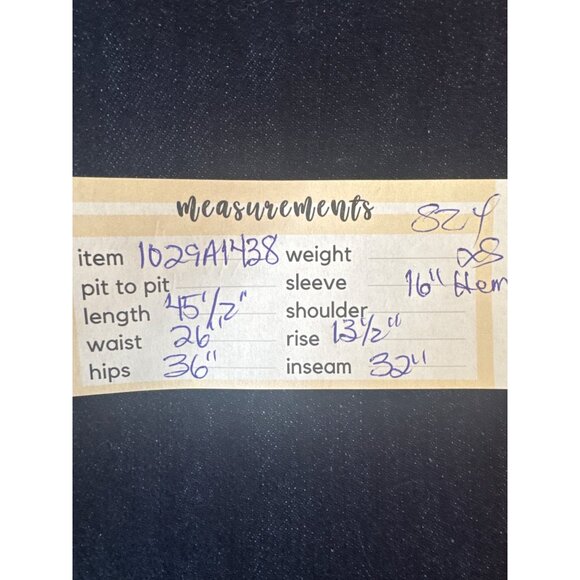 measurements
SZ 4
28
item 1029A1438 weight
pit to pit sleeve 16" Hem
length 45 1/2" shoulder
waist 26" rise 13 1/2"
hips 36" inseam 32"